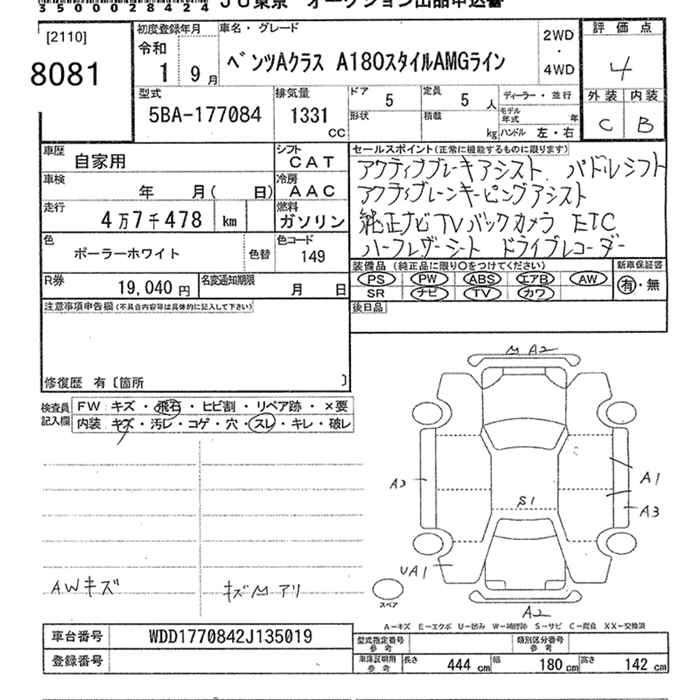 35000028424 JU東京 オークション出品申込書
[2110]
8081
初度登録年月
令和
1 9月
車名・グレード
ベンツAクラス A180スタイルAMGライン
2WD
・
4WD
評価点
4
外装 内装
C B
型式
5BA-177084
排気量
1331
CC
ドア
5
定員
5 人
形状
積載
kg
ディーラー・並行
モデル年式 年
ハンドル 左・右
車歴
自家用
シフト
CAT
車検
年 月( 日)
冷房
AAC
走行
4万7千478 km
燃料
ガソリン
色
ポーラーホワイト
色替
色コード
149
R券
19,040 円
名変通知期限
月 日
セールスポイント(正常に機能するものに限ります)
アクティブブレーキアシスト、パドルシフト
アクティブレーンキーピングアシスト
純正ナビTVバックカメラ ETC
ハーフレザーシート ドライブレコーダー
装備品(純正品に限り○をつけてください)
新車保証書
PS PW ABS エアB AW
SR ナビ TV カワ
有・無
後日品
注意事項申告欄(不具合内容等は具体的に記入して下さい)
修復歴 有〔箇所 〕
検査員
記入欄
FW キズ・飛石・ヒビ割・リペア跡・×要
内装 キズ・汚レ・コゲ・穴・スレ・キレ・破レ
AWキズ
キズMアリ
M A2
A3
A1
A3
S1
UA1
A2
スペア
A−キズ E−エクボ U−凹み W−補修跡 S−サビ C−腐食 XX−交換済
車台番号
WDD1770842J135019
登録番号
型式指定番号
参考
類別区分番号
参考
車庫証明用
参考
長さ 444 cm 幅 180 cm 高さ 142 cm